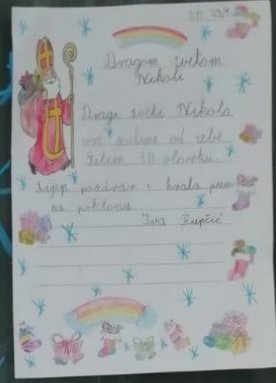 Dragom svetom
Nikoli
Dragi sveti Nikola
ove godine od tebe
želim 3D olovku.
Lijepi pozdrav i hvala puno
na poklonu.
Iva Rupčić